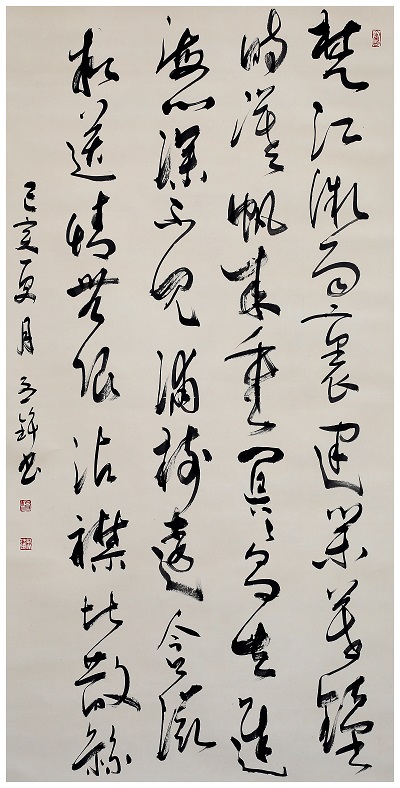 楚江微雨裏建業暮鐘
時漠〻帆來重冥〻鳥去遲
海門深不見浦樹遠含滋
相送情無限沾襟比散絲
己亥夏月 鋒書